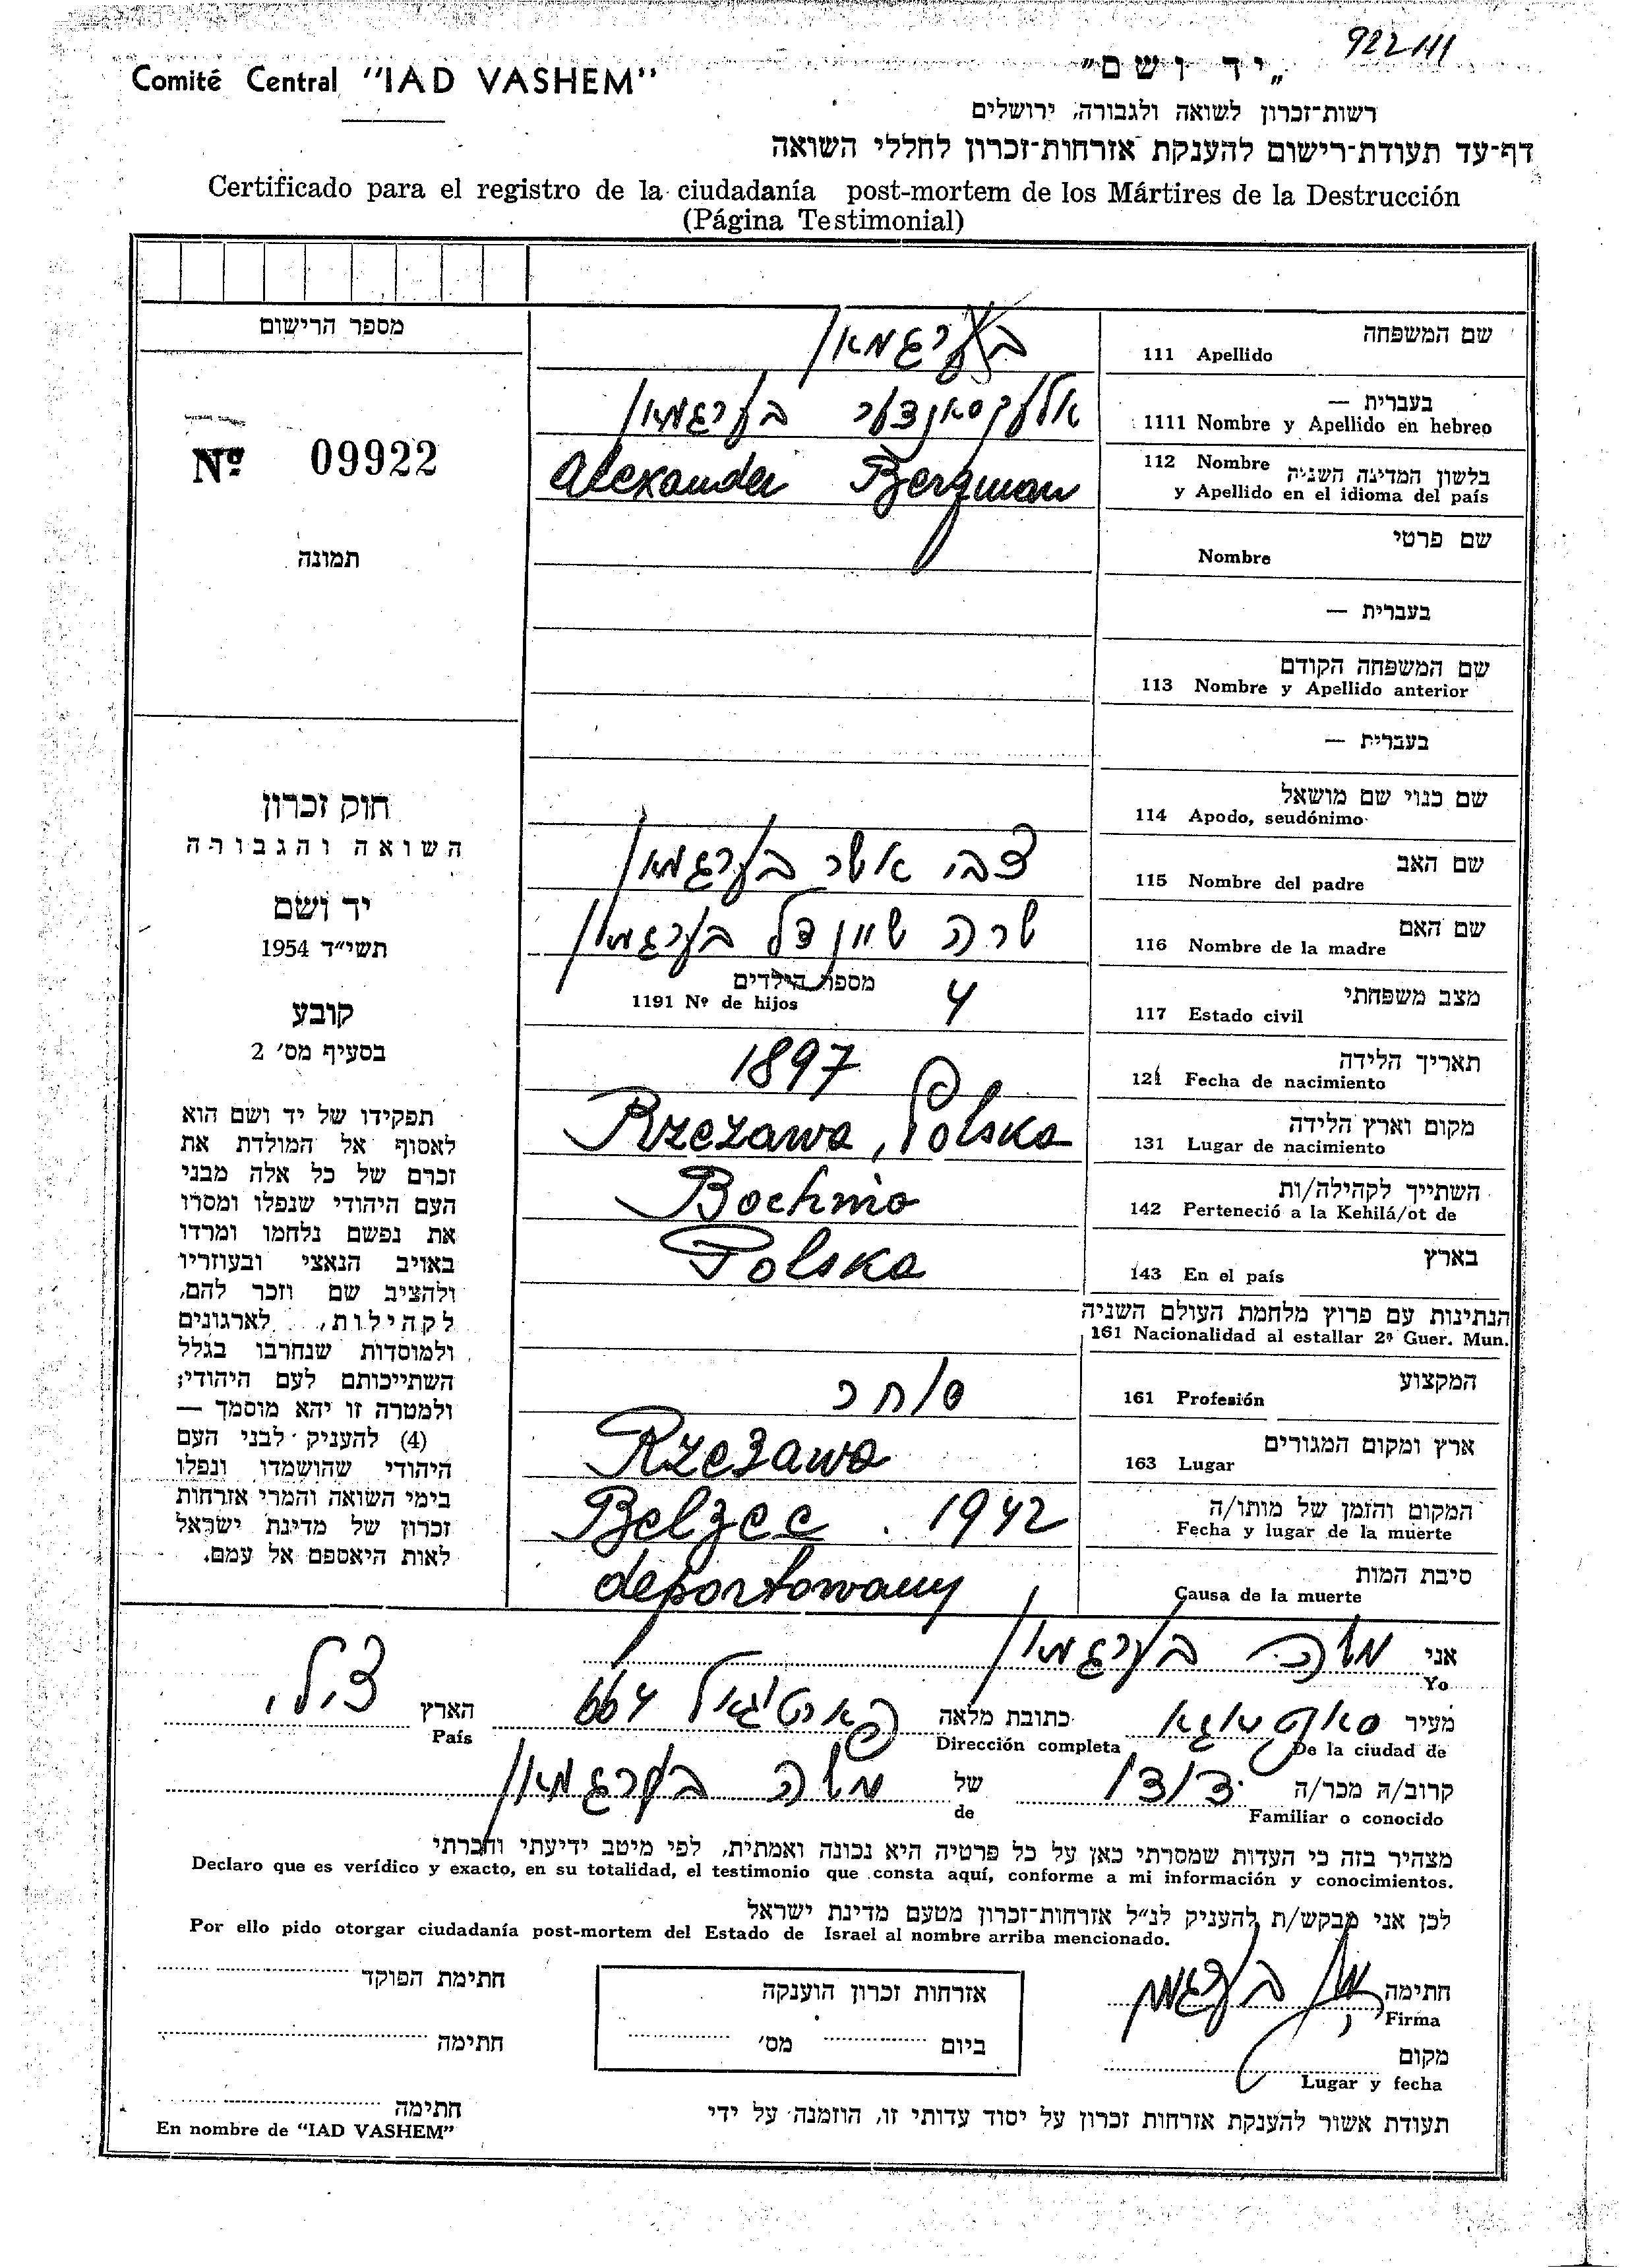 922 111
Comité Central "IAD VASHEM"
„יד ושם"
רשות־זכרון לשואה ולגבורה, ירושלים
דף־עד תעודת־רישום להענקת אזרחות־זכרון לחללי השואה
Certificado para el registro de la ciudadanía post-mortem de los Mártires de la Destrucción
(Página Testimonial)
שם המשפחה
111 Apellido
בערגמאן
בעברית —
1111 Nombre y Apellido en hebreo
אלעקסאנדער בערגמאן
112 Nombre בלשון המדינה השניה
y Apellido en el idioma del país
Alexander Bergman
שם פרטי
Nombre
בעברית —
שם המשפחה הקודם
113 Nombre y Apellido anterior
בעברית —
שם כנוי שם מושאל
114 Apodo, seudónimo
שם האב
115 Nombre del padre
צבי אשר בערגמאן
שם האם
116 Nombre de la madre
שרה שיינדל בערגמאן
מצב משפחתי
117 Estado civil
מספר הילדים
1191 Nº de hijos
4
תאריך הלידה
121 Fecha de nacimiento
1897
מקום וארץ הלידה
131 Lugar de nacimiento
Rzezawa, Polska
השתייך לקהילה/ות
142 Perteneció a la Kehilá/ot de
Bochnia
בארץ
143 En el país
Polska
הנתינות עם פרוץ מלחמת העולם השניה
161 Nacionalidad al estallar 2ª Guer. Mun.
המקצוע
161 Profesión
סוחר
ארץ ומקום המגורים
163 Lugar
Rzezawa
המקום והזמן של מותו/ה
Fecha y lugar de la muerte
Belzec . 1942
סיבת המות
Causa de la muerte
deportowany
מספר הרישום
Nº 09922
תמונה
חוק זכרון
השואה והגבורה
יד ושם
תשי״ד 1954
קובע
בסעיף מס׳ 2
תפקידו של יד ושם הוא
לאסוף אל המולדת את
זכרם של כל אלה מבני
העם היהודי שנפלו ומסרו
את נפשם נלחמו ומרדו
באויב הנאצי ובעוזריו
ולהציב שם וזכר להם,
לקהילות, לארגונים
ולמוסדות שנחרבו בגלל
השתייכותם לעם היהודי;
ולמטרה זו יהא מוסמך —
(4) להעניק לבני העם
היהודי שהושמדו ונפלו
בימי השואה והמרי אזרחות
זכרון של מדינת ישראל
לאות היאספם אל עמם.
אני משה בערגמאן
Yo
מעיר סאנטיאגא כתובת מלאה פארטוגאל 664 הארץ צילי
De la ciudad de Dirección completa País
קרוב/ה מכר/ה של משה בערגמאן
Familiar o conocido de
מצהיר בזה כי העדות שמסרתי כאן על כל פרטיה היא נכונה ואמתית, לפי מיטב ידיעתי והכרתי
Declaro que es verídico y exacto, en su totalidad, el testimonio que consta aquí, conforme a mi información y conocimientos.
לכן אני מבקש/ת להעניק לנ״ל אזרחות־זכרון מטעם מדינת ישראל
Por ello pido otorgar ciudadanía post-mortem del Estado de Israel al nombre arriba mencionado.
חתימה
Firma
מקום
Lugar y fecha
אזרחות זכרון הוענקה
ביום מס׳
חתימת הפוקד
חתימה
חתימה
En nombre de "IAD VASHEM"
תעודת אשור להענקת אזרחות זכרון על יסוד עדותי זו, הוזמנה על ידי